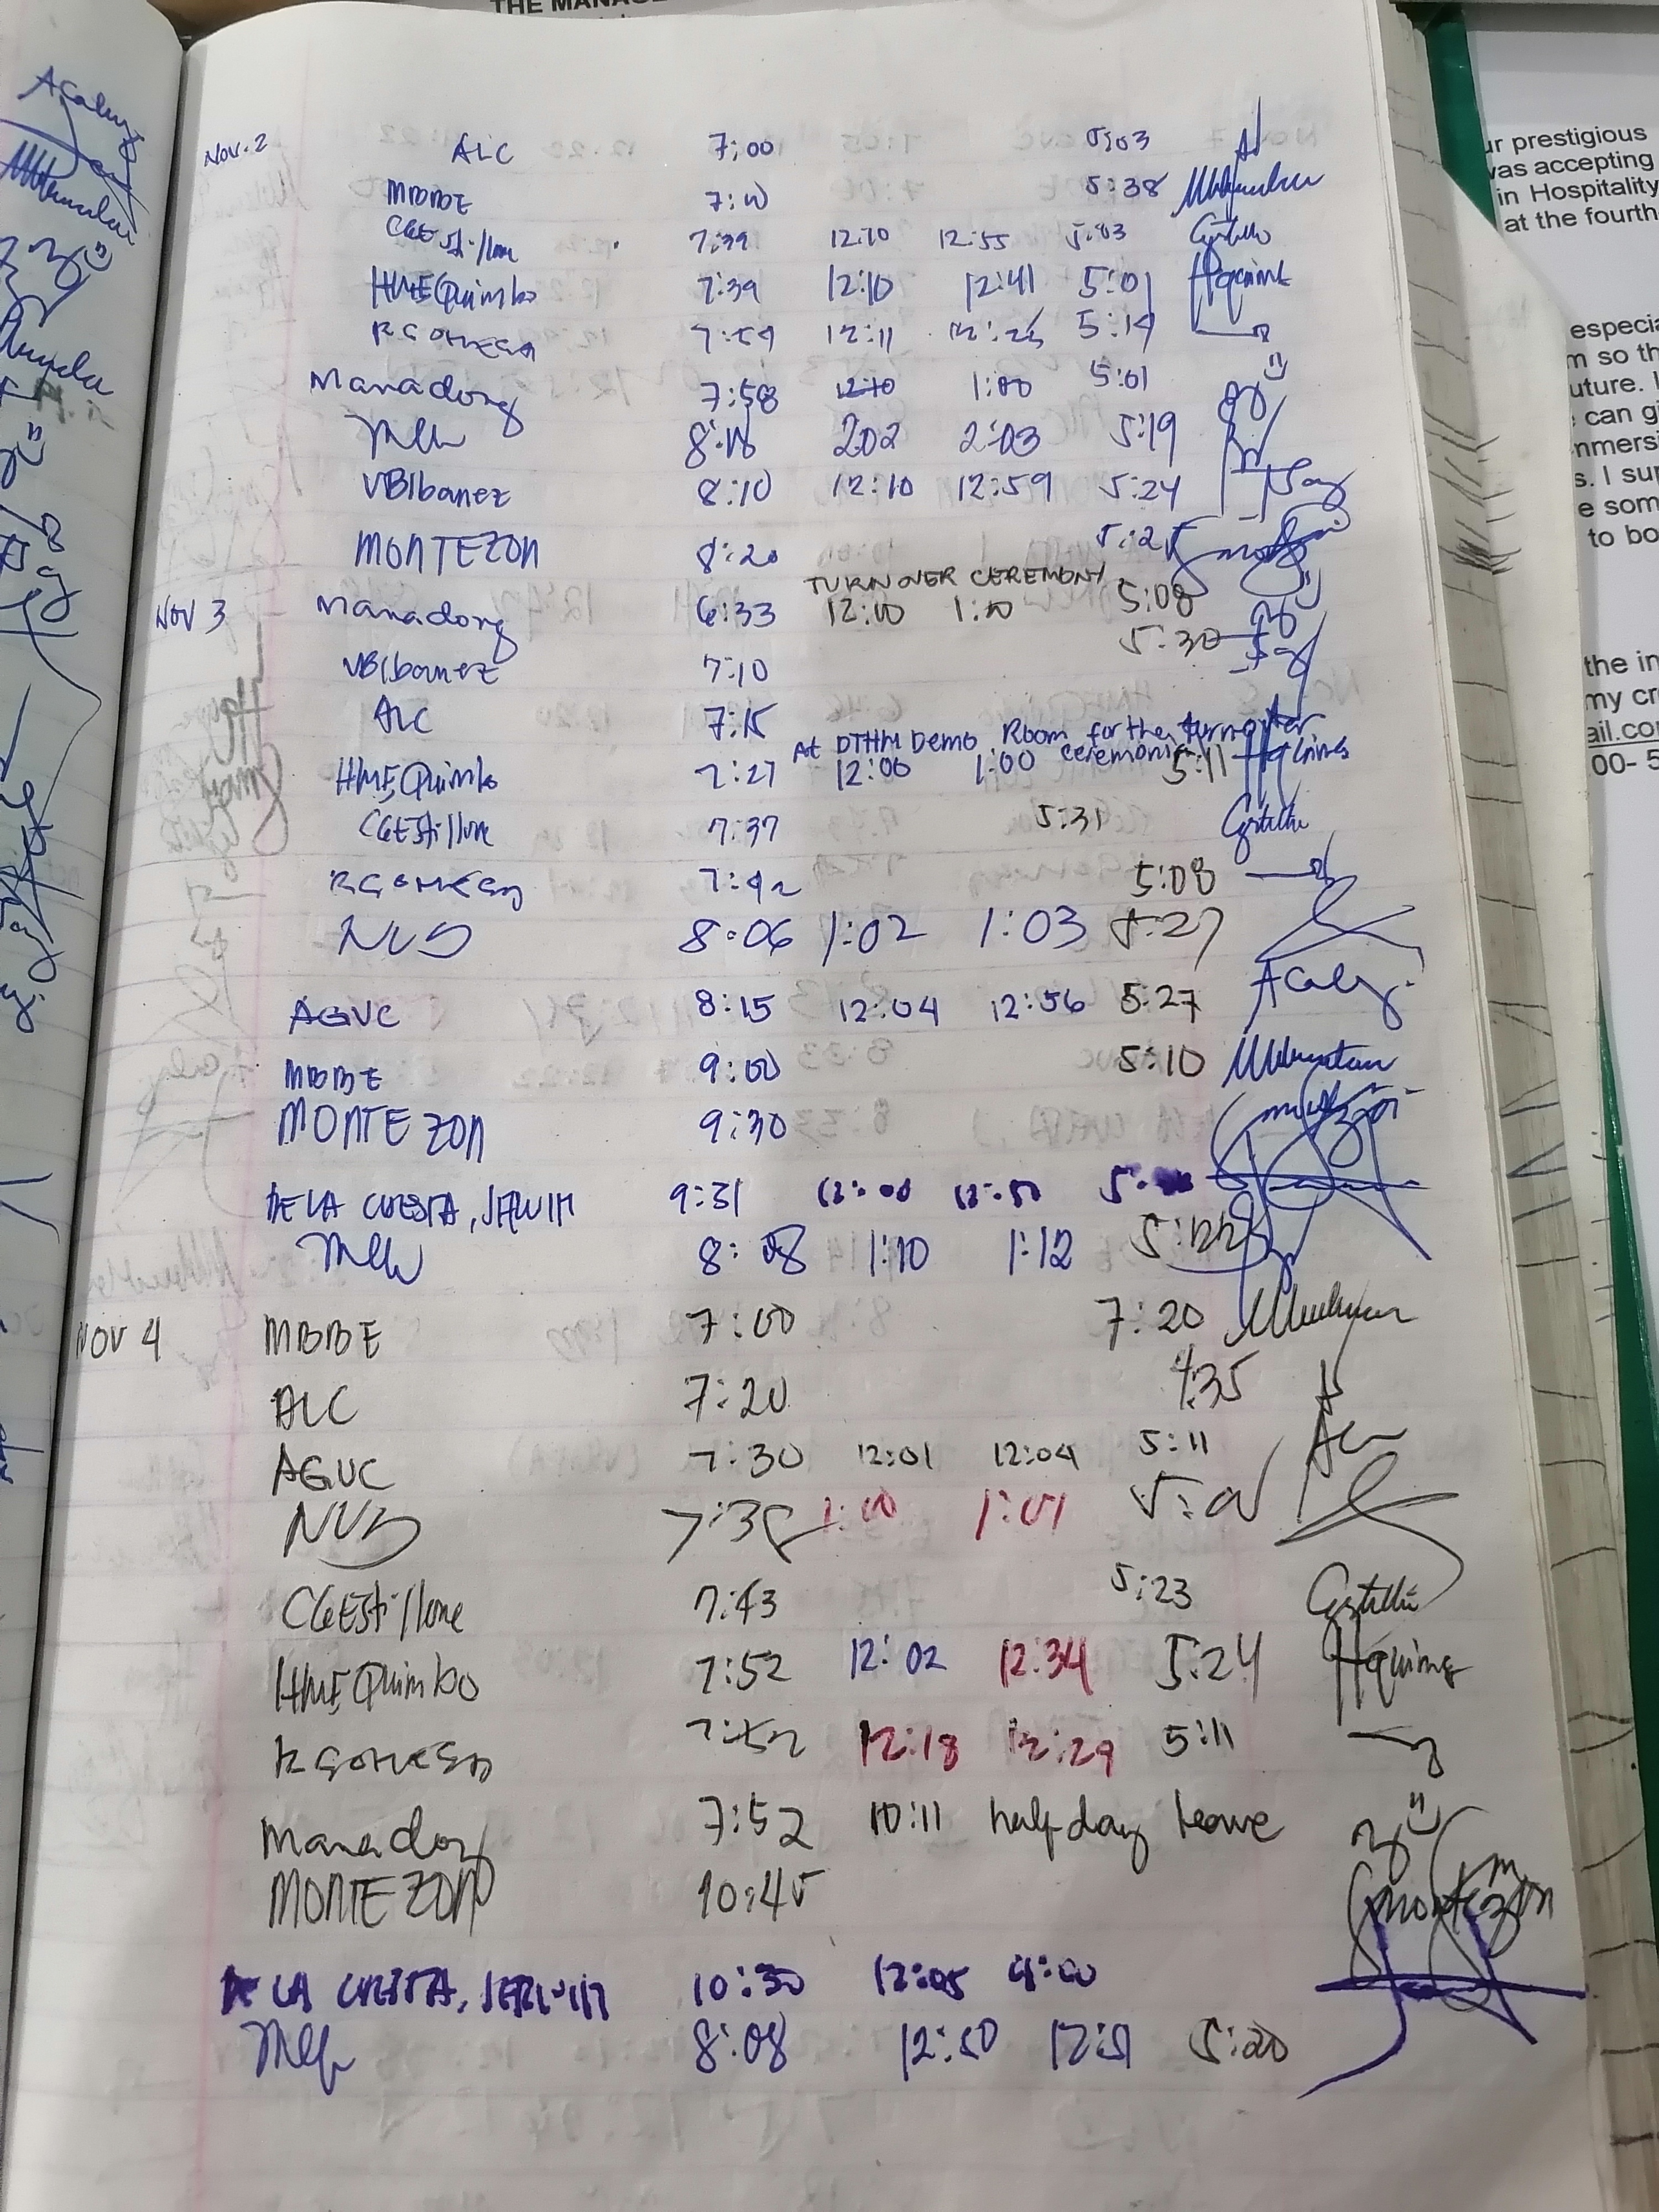 THE MANAG
Nov. 2 ALC 7:00 5:03
MBBBE 7:00 5:38
CGEstillore 7:39 12:10 12:55 5:03
HMEQuimbo 7:39 12:10 12:41 5:01
RGOMEGA 7:59 12:11 5:19
Manadong 7:58 12:10 1:00 5:01
8:18 202 2:03 5:19
VBIbanez 8:10 12:10 12:59 5:24
MONTEZON 8:20 5:25
TURNOVER CEREMONY
NOV 3 Manadong 6:33 12:00 1:00 5:08
VBIbanez 7:10 5:30
ALC 7:15
At DTHM Demo Room for the turnover ceremonies
HMEQuimbo 7:27 12:00 1:00 5:11
CGEstillore 7:37 5:31
RGOMEGA 7:42 5:08
NVB 8:06 1:02 1:03 5:27
AGUC 8:15 12:04 12:56 5:27
MBBE 9:00 5:10
MONTEZON 9:30
DE LA CUESTA, JERWIN 9:31 12:00 12:50
8:08 1:10 1:12 5:22
NOV 4 MBBE 7:00 7:20
ALC 7:20 4:35
AGUC 7:30 12:01 12:04 5:11
NVB 7:38 1:00 1:01
CGEstillore 7:43 5:23
HMEQuimbo 7:52 12:02 12:34 5:24
RGOMEGA 7:52 12:18 12:29 5:11
Manadong 7:52 10:11 half day leave
MONTEZON 10:45
DE LA CUESTA, JERWIN 10:30 12:05 4:00
8:08 12:50 12:51 5:20
ur prestigious
was accepting
in Hospitality
at the fourth
especia
m so th
uture. I
can gi
mmersi
s. I sup
e som
to bo
the in
my cr
ail.co
00- 5